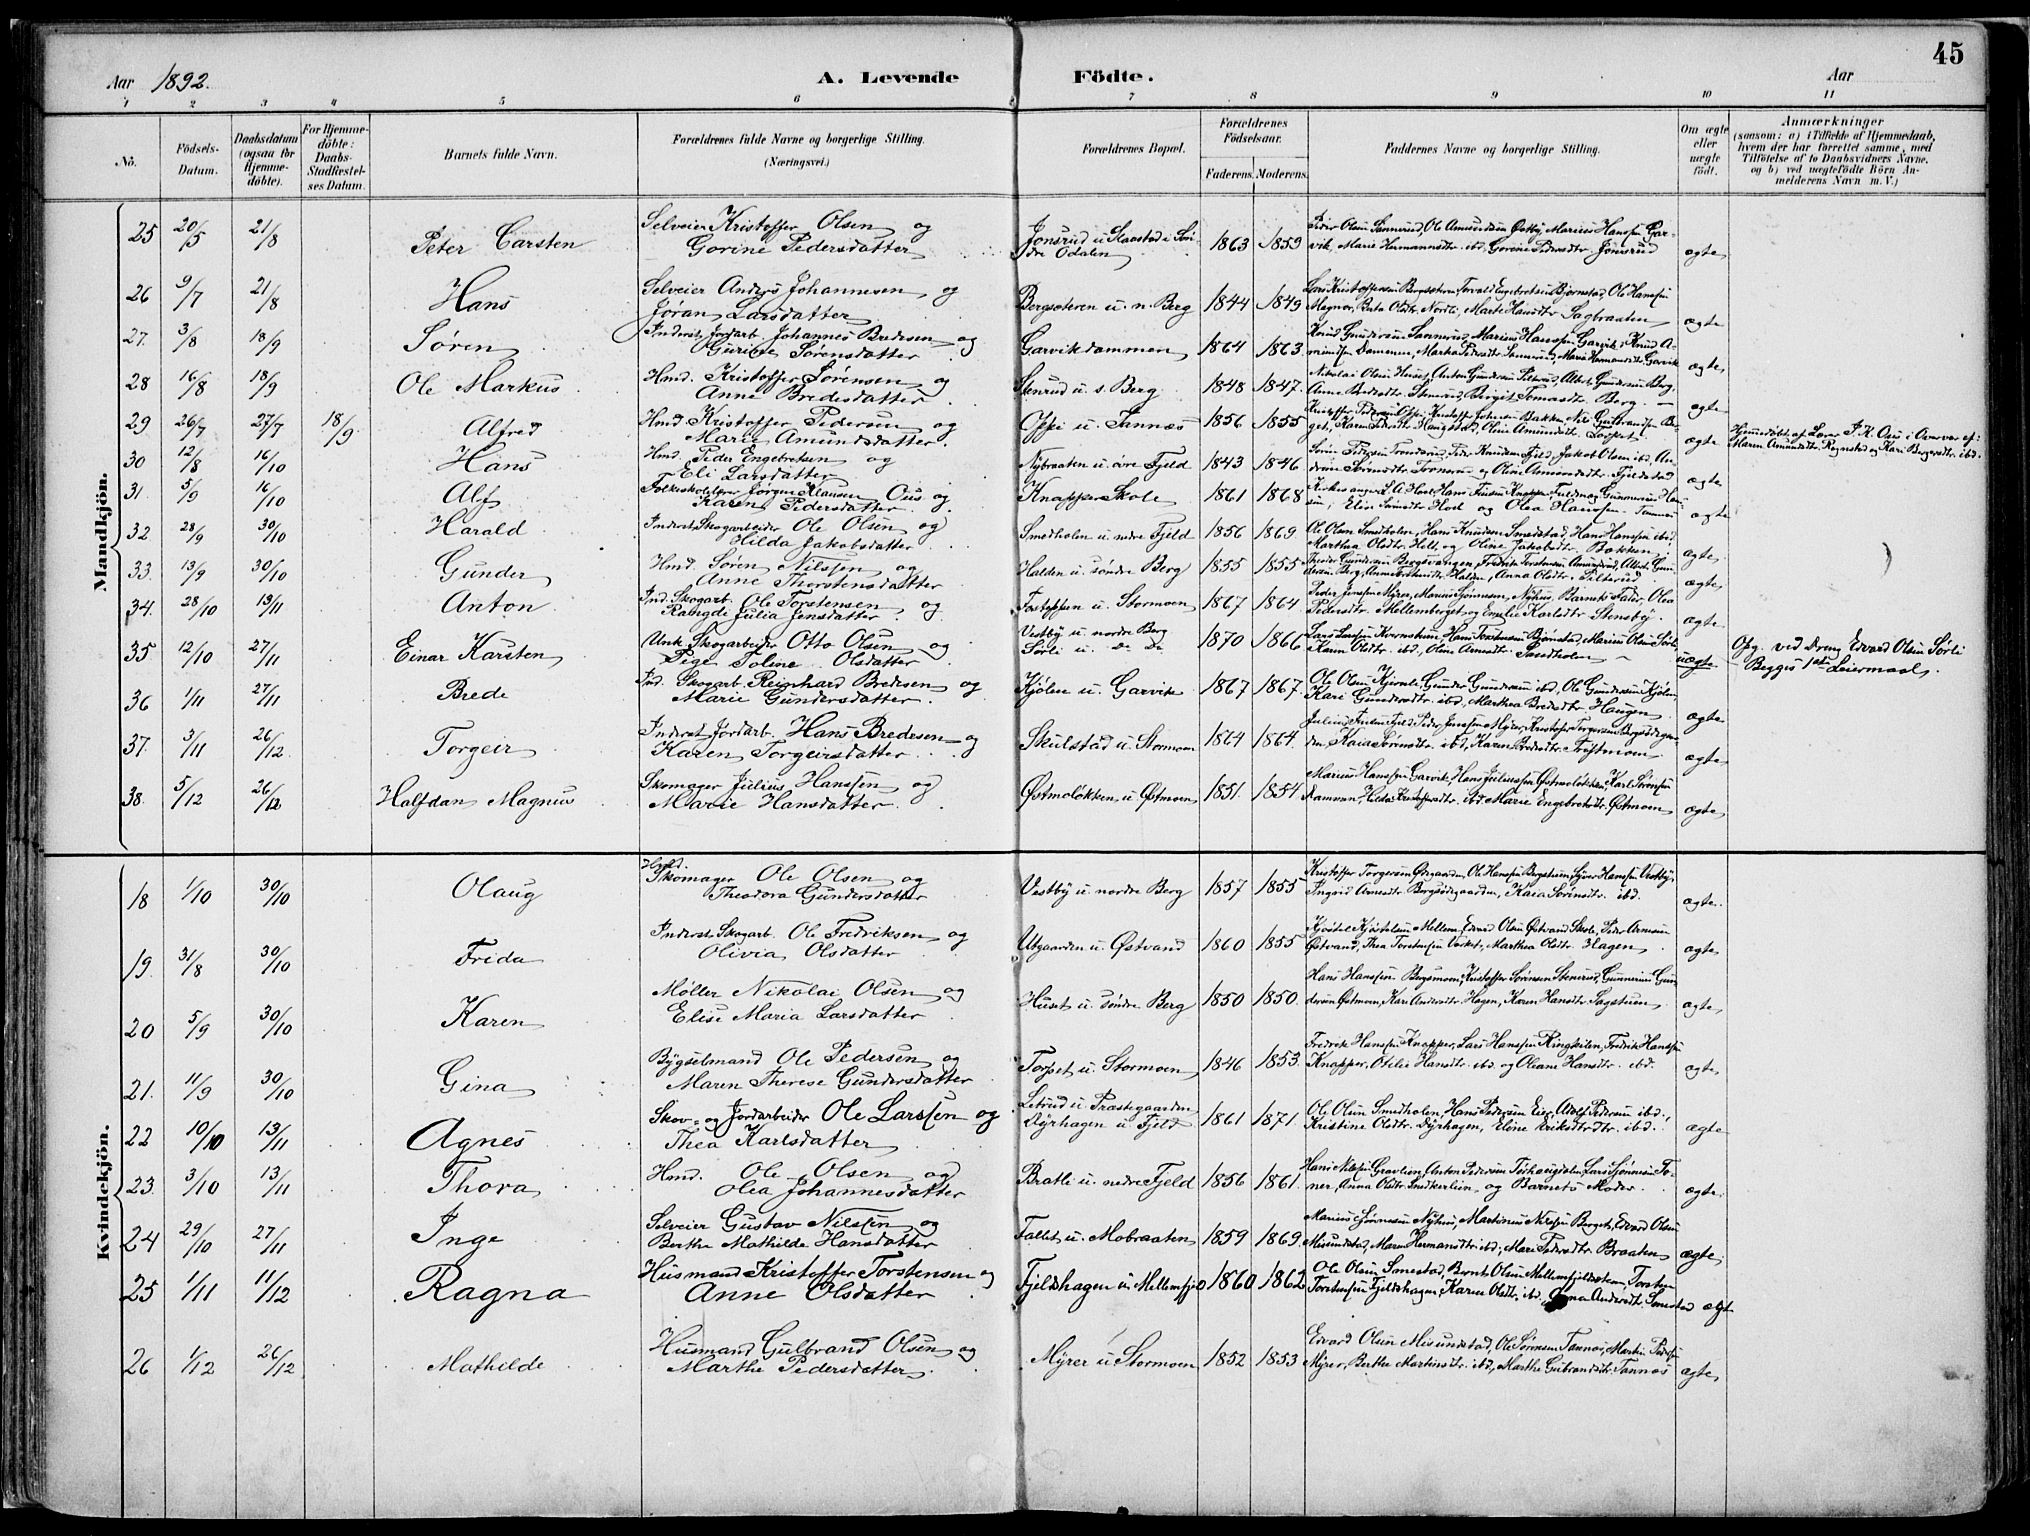 45
Aar 1892. A. Levende Födte. Aar
1 2 3 4 5 6 7 8 9 10 11
No. Födsels-Datum. Daabsdatum (ogsaa for Hjemme-döbte). For Hjemme-döbte: Daabs-Stadfæstel-ses Datum. Barnets fulde Navn. Forældrenes fulde Navne og borgerlige Stilling. (Næringsvei.) Forældrenes Bopæl. Forældrenes Födselsaar. Faderens. Moderens. Faddernes Navne og borgerlige Stilling. Om ægte eller uægte födt. Anmærkninger (saasom: a) i Tilfælde af Hjemmedaab, hvem der har forrettet samme, med Tilföielse af to Daabsvidners Navne, og b) ved uægtefödte Börn An-melderens Navn m. V.)
Mandkjön.
25 20/5 21/8 Peter Carsten Selveier Kristoffer Olsen og Gorine Pedersdatter Jonsrud u Slaastad i Søndre Odalen 1863 1859 Peder Olsen Sannerud, Ole Amundsen Østby, Marius Hansen Garvik, Marie Hermansdtr. ibd. Gorine Pedersdtr. Jonsrud ægte
26 9/7 21/8 Hans Selveier Anders Johannesen og Jøran Larsdatter Bergsæteren u. n. Berg 1844 1849 Lars Kristoffersen Bergsæteren, Torvald Engebretsen Bjørnstad, Ole Hansen Magnor, Olsdtr. Nordli, Marte Hansdtr. Sagbraaten ægte
27. 3/8 18/9 Søren Inderst Jordarb. Johannes Bredesen og Gurine Sørensdatter Garvikdammen 1864 1863. Knud Gundersen Sannerud, Marius Hansen Garvik, Knud Amundsen Dammen, Marthea Pedersdtr. Sannerud, Marie Hermansdtr. Garvik ægte
28 16/8 18/9 Ole Markus Hmd. Kristoffer Sørensen og Anne Bredesdatter Stenrud u. s. Berg 1848 1847. Nikolai Olsen Huset, Anton Gundersen Pilterud, Albert Gundersen Berg, Anne Bredesdtr. Stenerud, Birgit Tomasdtr. Berg. ægte
29 26/7 27/7 18/9 Alfred Hmd Kristoffer Pedersen og Marie Amundsdatter Oppi u. Sannæs 1856 1855 Kristoffer Pedersen Oppi, Kristoffer Johnsen Bakken, Nils Gulbrandsen Berget, Karen Haugstad, Oline Amundsdtr. ægte Hjemmedöbt af Lærer P. K. Ous i Overvær af: Maren Amundsdtr. Rognstad og Kari Bergersdtr. ibd.
30 12/8 16/10 Hans Hmd. Peder Engebretsen og Eli Larsdatter Nybraaten u. øvre Fjeld 1843 1846 Peder Knudsen Fjeld, Jakob Olsen ibd., Andrine Sørensdtr. og Oline Amundsdtr. Fjeldstad ægte
31. 5/9 16/10 Alf Folkeskolelærer Jörgen Klausen Ous og Karen Pedersdatter Knapper Skole 1861 1868 Kirkesanger L. A. Hoel, Hans Knapper, Gunnerius Hansen, Elise Hoel og Olea Hansen Tannes ægte
32 28/9 30/10 Harald Inderst Skogarbeider Ole Olsen og Hilda Jakobsdatter Smedholen u nedre Fjeld 1856 1869. Ole Olsen Smedholen, Hans Knudsen Smedstad, Hans Hansen ibd. Marthea Olsdtr. Holt og Oline Jakobsdtr. Bakken. ægte
33. 13/9 30/10 Gunder Hmd. Søren Nilsen og Anne Thorstensdatter Halden u. søndre Berg 1855 1855 Theodor Gundersen Bergsvangen, Fredrik Torstensen Amundrud, Albert Gundersen Berg, Anne Torstensdtr. Halden, Anna Olsdtr. Pilterud. ægte
34. 28/10 13/11 Anton Ind. Skogarb. Ole Torstensen og Rangdi Julia Jensdatter Tostoppen u. Stormoen 1867 1864 Peder Jensen Myrer, Marius Sjønnesen Nyhus, Barnets Fader, Olea Pedersdtr. Mellemberget og Emilie Karlsdtr. Stensby. ægte
35 12/10 27/11 Einar Karsten Unk. Skogarbeider Otto Olsen og Pige Toline Olsdatter Vestby u. nordre Berg Sørli u. Do Do 1870 1866 Lars Larsen Kvernstuen, Hans Torstensen Bjørnstad, Marius Olsen Sørli, Karen Olsdtr. ibd., Oline Arnesdtr. Smedholen uægte Opg. ved Dreng Edvard Olsen Sørli Begges 1ste Leiermaal.
36 1/11 27/11 Brede Ind. Skogarb. Reinhard Bredesen og Marie Gundersdatter Kjølen u. Garvik 1867 1867. Ole Olsen, Gunder Gundersen ibd., Ole Gundersen Kjølen, Kari Gundersdtr. ibd., Marthea Bredesdtr. Haugen ægte
37. 3/11 26/12 Torgeir Inderst Jordarb. Hans Bredesen og Karen Torgeirsdatter Skulstad u Stormoen 1864 1864. Julius Fjeld, Peder Jensen Myrer, Kristoffer Torgersen Bergsødegaarden, Kaia Sørensdtr. ibd., Karen Bredesdtr. Triftmoen ægte
38. 5/12 26/12 Halfdan Magnus Skomager Julius Hansen og Marie Hansdatter Østmoløkken u Østmoen 1851. 1854. Marius Hansen Garvik, Hans Juliussen Østmoløkken, Karl Sørensen Rammen, Hilda Kristoffersdtr. ibd. Marie Engebretsdtr. Østmoen ægte
Kvindekjön.
18 1/10 30/10 Olaug Hmd. Skomager Ole Olsen og Theodora Gundersdatter Vestby u nordre Berg 1857 1855 Kristoffer Torgersen Ødegaarden, Ole Hansen Bergstuen, Syver Hansen Vestby, Ingrid Arnesdtr. Bergsødegaarden, Kaia Sørensdtr. ibd. ægte.
19. 31/8 30/10 Frida Inderst Skogarb. Ole Fredriksen og Olivia Olsdatter Utgaarden u. Østvand 1860 1855 Kjøstel Kjøstelsen Mellem, Edvard Olsen Østvand Skole, Peder Arnesen Østvand, Thea Torstensen Verket, Marthea Olsdtr. Hagen ægte
20 5/9 30/10 Karen Møller Nikolai Olsen og Elise Maria Larsdatter Huset u. søndre Berg 1850 1850. Hans Hansen Bergsmoen, Kristoffer Sørensen Stenerud, Gunnerius Gundersen Østmoen, Kari Andersdtr. Hagen, Karen Hansdtr. Sagstuen ægte
21. 11/9 30/10 Gina Bygselmand Ole Pedersen og Maren Therese Gundersdatter Torpet u. Stormoen 1846 1853. Fredrik Hansen Knapper, Lars Hansen Ringkilen, Fredrik Hansen Knapper, Otelie Hansdtr. ibd. og Oleane Hansdtr. ibd. ægte
22 10/10 13/11 Agnes Skov- og Jordarbeider Ole Larssen og Thea Karlsdatter Letrud u. Præstegaarden Dyrhagen u Fjeld 1861 1871. Ole Olsen Smedholen, Hans Pedersen Eier, Adolf Pedersen ibd., Kristine Olsdtr. Dyrhagen, Eline Eriksdtr. ibd. ægte
23. 3/10 13/11 Thora Hmd. Ole Olsen og Olea Johannesdatter Bratli u. nedre Fjeld 1856 1861. Hans Nilsen Gravlien, Anton Pedersen Torhaugdalen, Lars Sjønnesen Toner, Anna Olsdtr. Smedkerlien og Barnets Moder. ægte.
24 29/10 27/11 Inge Selveier Gustav Nilsen og Berthe Mathilde Hansdatter Fallet u. Mobraaten 1859 1869. Marius Sjønnesen Nyhus, Martinus Nilsen Berget, Edvard Olsen Misundstad, Maren Hermansdtr. ibd., Mari Pedersdtr. Braaten ægte.
25 1/11 11/12 Ragna Husmand Kristoffer Torstensen og Anne Olsdatter Fjeldshagen u Mellemfjeld 1860 1862 Ole Olsen Smestad, Bernt Olsen Mellemfjeldstuen, Torsten Torstensen Fjeldshagen, Karen Olsdtr. ibd., Anna Andersdtr. Smestad ægte
26 1/12 26/12 Mathilde Husmand Gulbrand Olsen og Marthe Pedersdatter Myrer u Stormoen 1852 1853 Edvard Olsen Misundstad, Ole Sørensen Tannæs, Martin Pedersen Myrer, Berthe Martinsdtr. ibd., Marthe Gulbrandsdtr. Tannæs ægte